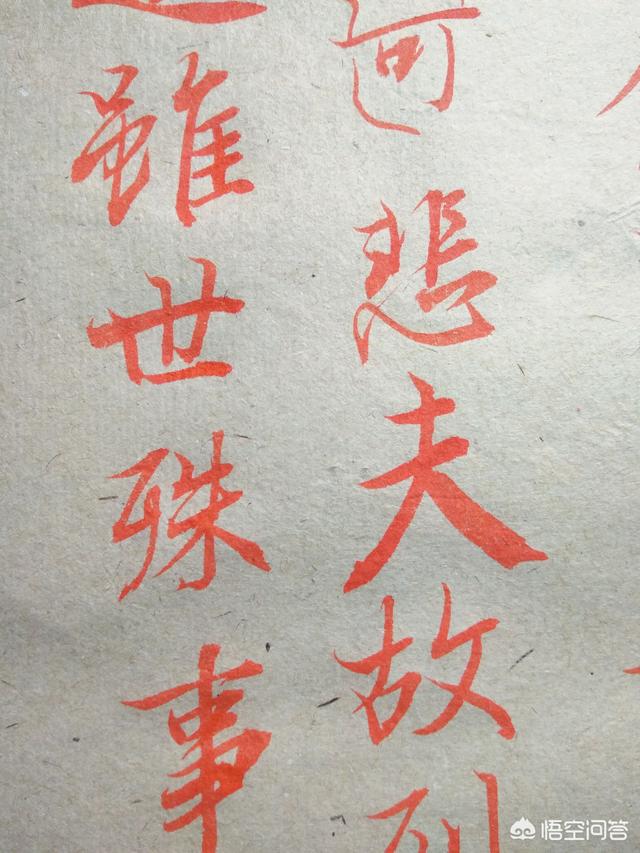 悲夫故列
雖世殊事
悟空问答